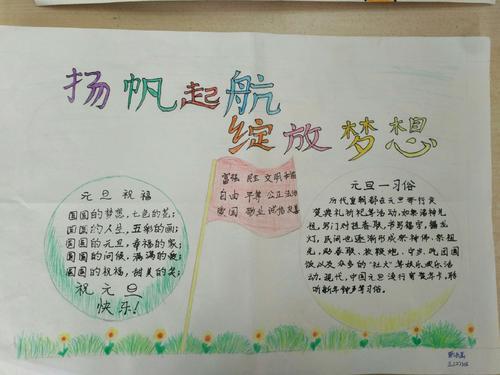 扬帆起航
绽放梦想
元旦祝福
圆圆的梦想，七色的花；
圆圆的人生，五彩的画；
圆圆的元旦，幸福的家；
圆圆的问候，满满的
圆圆的祝福，甜美的笑；
祝元旦
快乐！
富强 民主 文明 和谐
自由 平等 公正 法治
爱国 敬业 诚信 友善
元旦一习俗
历代皇朝都在元旦举行庆
贺典礼祈祀等活动，如祭诸神先
祖，写门对挂春联，书写福字、舞龙
灯，民间也逐渐形成祭神佛、祭祖
先，贴春联、放鞭炮、守岁、吃团圆
饭以及众多的“社火”等娱乐欢乐活
动。现代，中国元旦流行寄贺年卡，聆
听新年钟声等习俗。